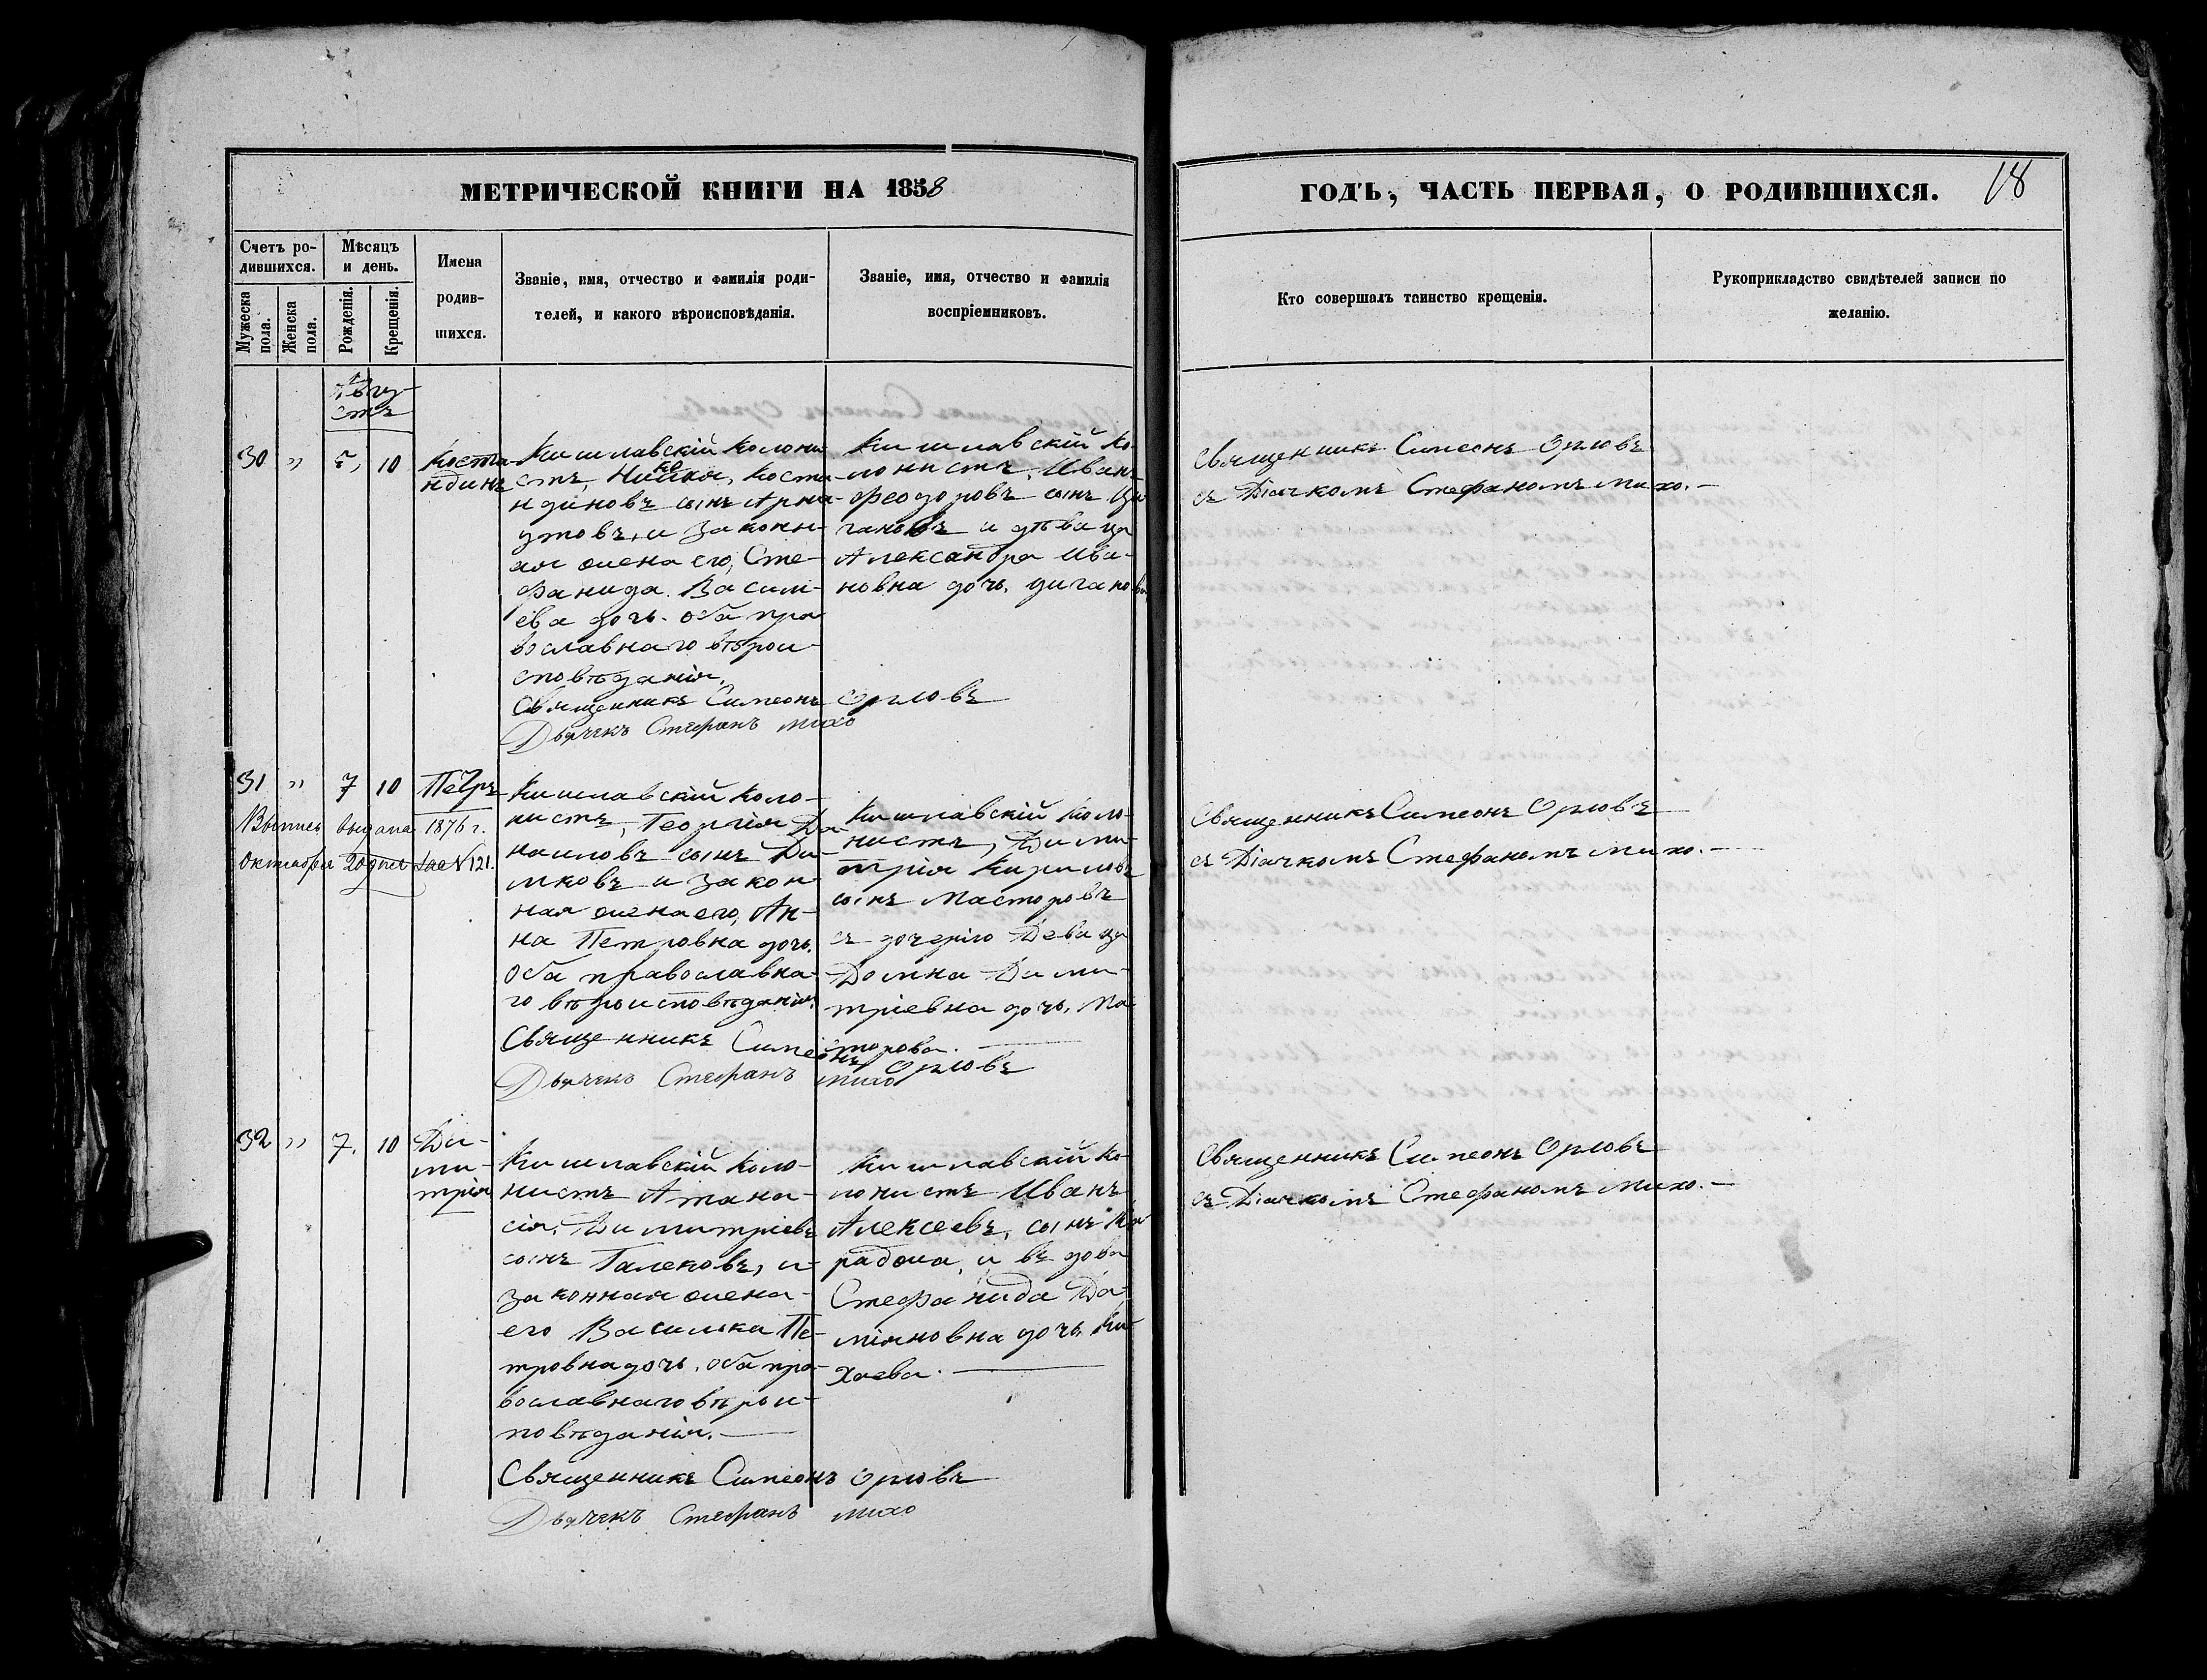 МЕТРИЧЕСКОЙ КНИГИ НА 1858
ГОДЪ, ЧАСТЬ ПЕРВАЯ, О РОДИВШИХСЯ.
18
Счетъ ро-
дившихся.
Мужеска
пола.
Женска
пола.
Мѣсяцъ
и день.
Рожденія.
Крещенія.
Имена
родив-
шихся.
Званіе, имя, отчество и фамилія роди-
телей, и какого вѣроисповѣданія.
Званіе, имя, отчество и фамилія
воспріемниковъ.
Кто совершалъ таинство крещенія.
Рукоприкладство свидѣтелей записи по
желанію.
Авгу-
стъ
30 " 5, 10
Коста-
ндинъ
Кишлавскій колони-
стъ, Коста-
ндиновъ сынъ Арна-
утовъ, и законн-
ая жена его, Сте-
фанида Василі-
ева дочь. оба пра-
вославнаго вѣрои-
сповѣданія.
Священникъ Симеонъ Орловъ
Дьячекъ Стефанъ Михо
Кишлавскій ко-
лонистъ, Иванъ
Феодоровъ сынъ Ци-
гановъ и дѣвица
Александра Ива-
новна дочь, Циганова
Священникъ Симеонъ Орловъ
съ Діачкомъ Стефаномъ Михо.—
31 " 7 10 Петръ
Выпись выдана 1876 г.
Октября 20 дня за № 121.
Кишлавскій коло-
нистъ, Георгія Да-
наиловъ сынъ Ди-
мковъ и закон-
ная жена его, Ан-
на Петровна дочь.
Оба православна-
го вѣроисповѣданія.
Священникъ Симеонъ Орловъ
Дьячекъ Стефанъ Михо
Кишлавскій коло-
нистъ, Дими-
трія Кириловъ
сынъ Масторовъ
съ дочерію Девица
Домна Дими-
тріевна дочь, Ма-
сторова.
Священникъ Симеонъ Орловъ—
съ Діачкомъ Стефаномъ Михо.—
32 " 7. 10
Ди-
ми-
трія
Кишлавскій коло-
нистъ Атана-
сія, Димитріевъ
сынъ Галековъ, и
законная жена-
его Василика Пе-
тровна дочь. оба пра-
вославнаго вѣрои-
повѣданія.—
Священникъ Симеонъ Орловъ
Дьячекъ Стефанъ Михо
Кишлавскій ко-
лонистъ Иванъ
Алексеевъ, сынъ Ка-
раджа, и въдова
Стефанида Да-
міяновна дочь Ми-
хаева.—
Священникъ Симеонъ Орловъ
съ Діачкомъ Стефаномъ Михо.—